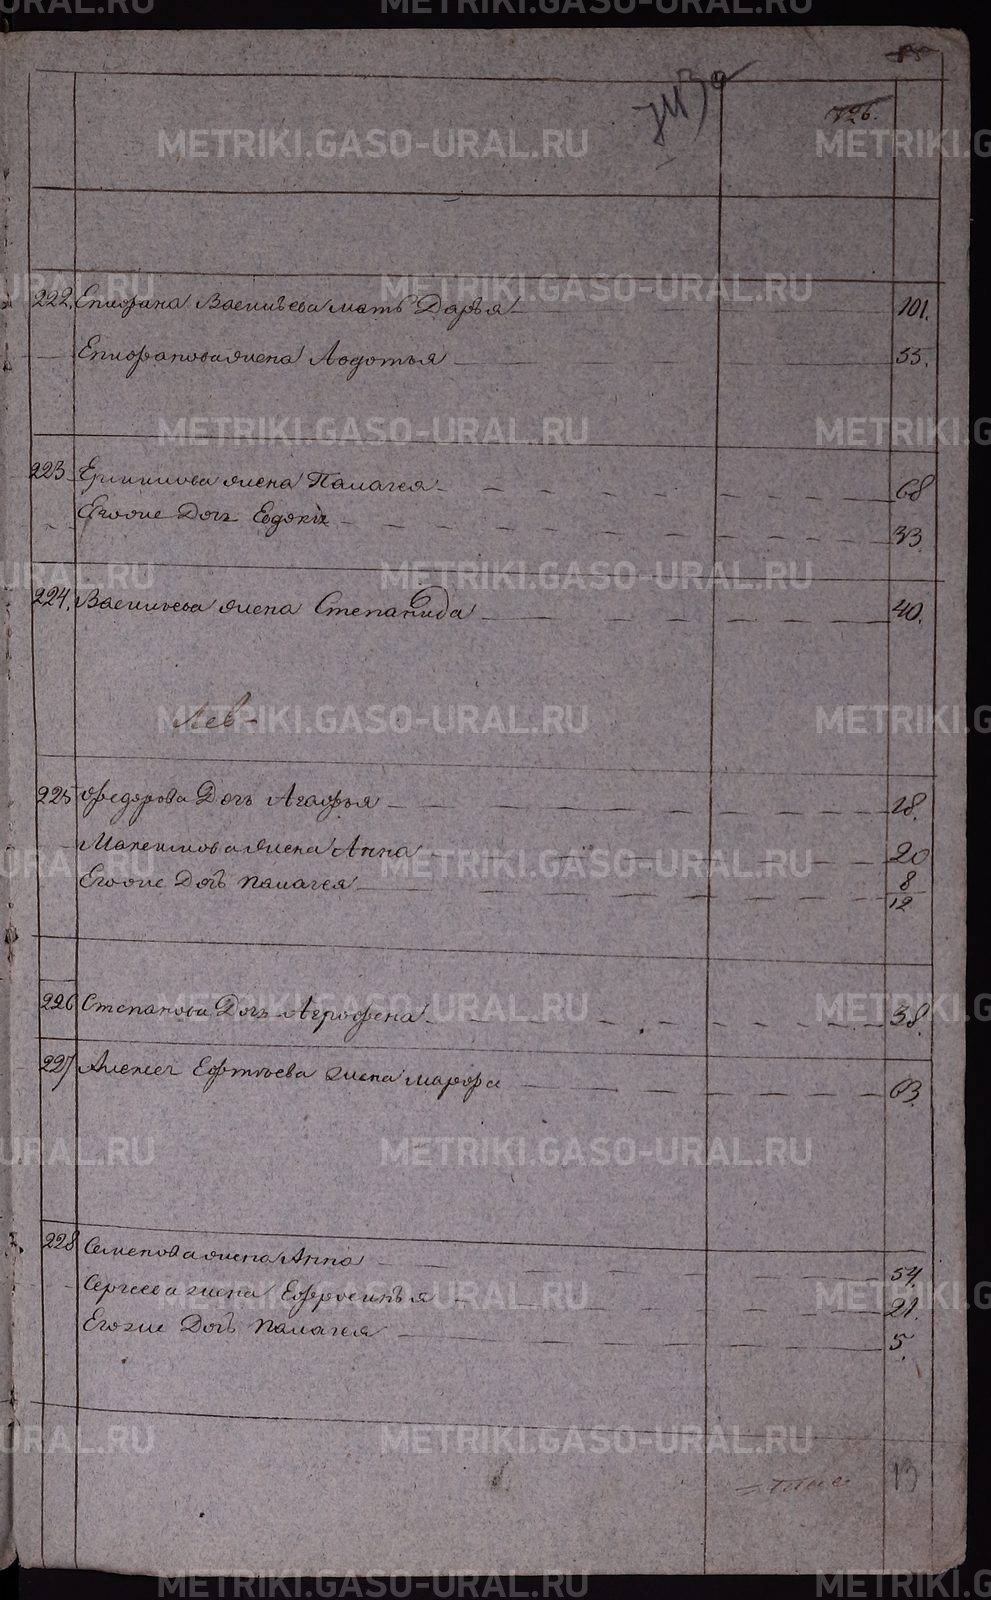 85
726.
222. Епифана Васильева мать Дарья 101.
Епифанова жена Авдотья 55.
223 Ермилова жена Палагея 68
Егоже Дочь Евдокия 33
224. Васильева жена Степанида 40.
Лев-
225 Федорова Дочь Агафья 18.
Максимова жена Анна 20
Егоже Дочь Палагея 8
12
226 Степанова Дочь Агрофена 38.
227 Алексея Ефтиѣева жена марфа 63.
228 Семенова жена Анна 54.
Сергеева жена Ефросинья 21.
Егоже Дочь Палагея 5.
13
METRIKI.GASO-URAL.RU